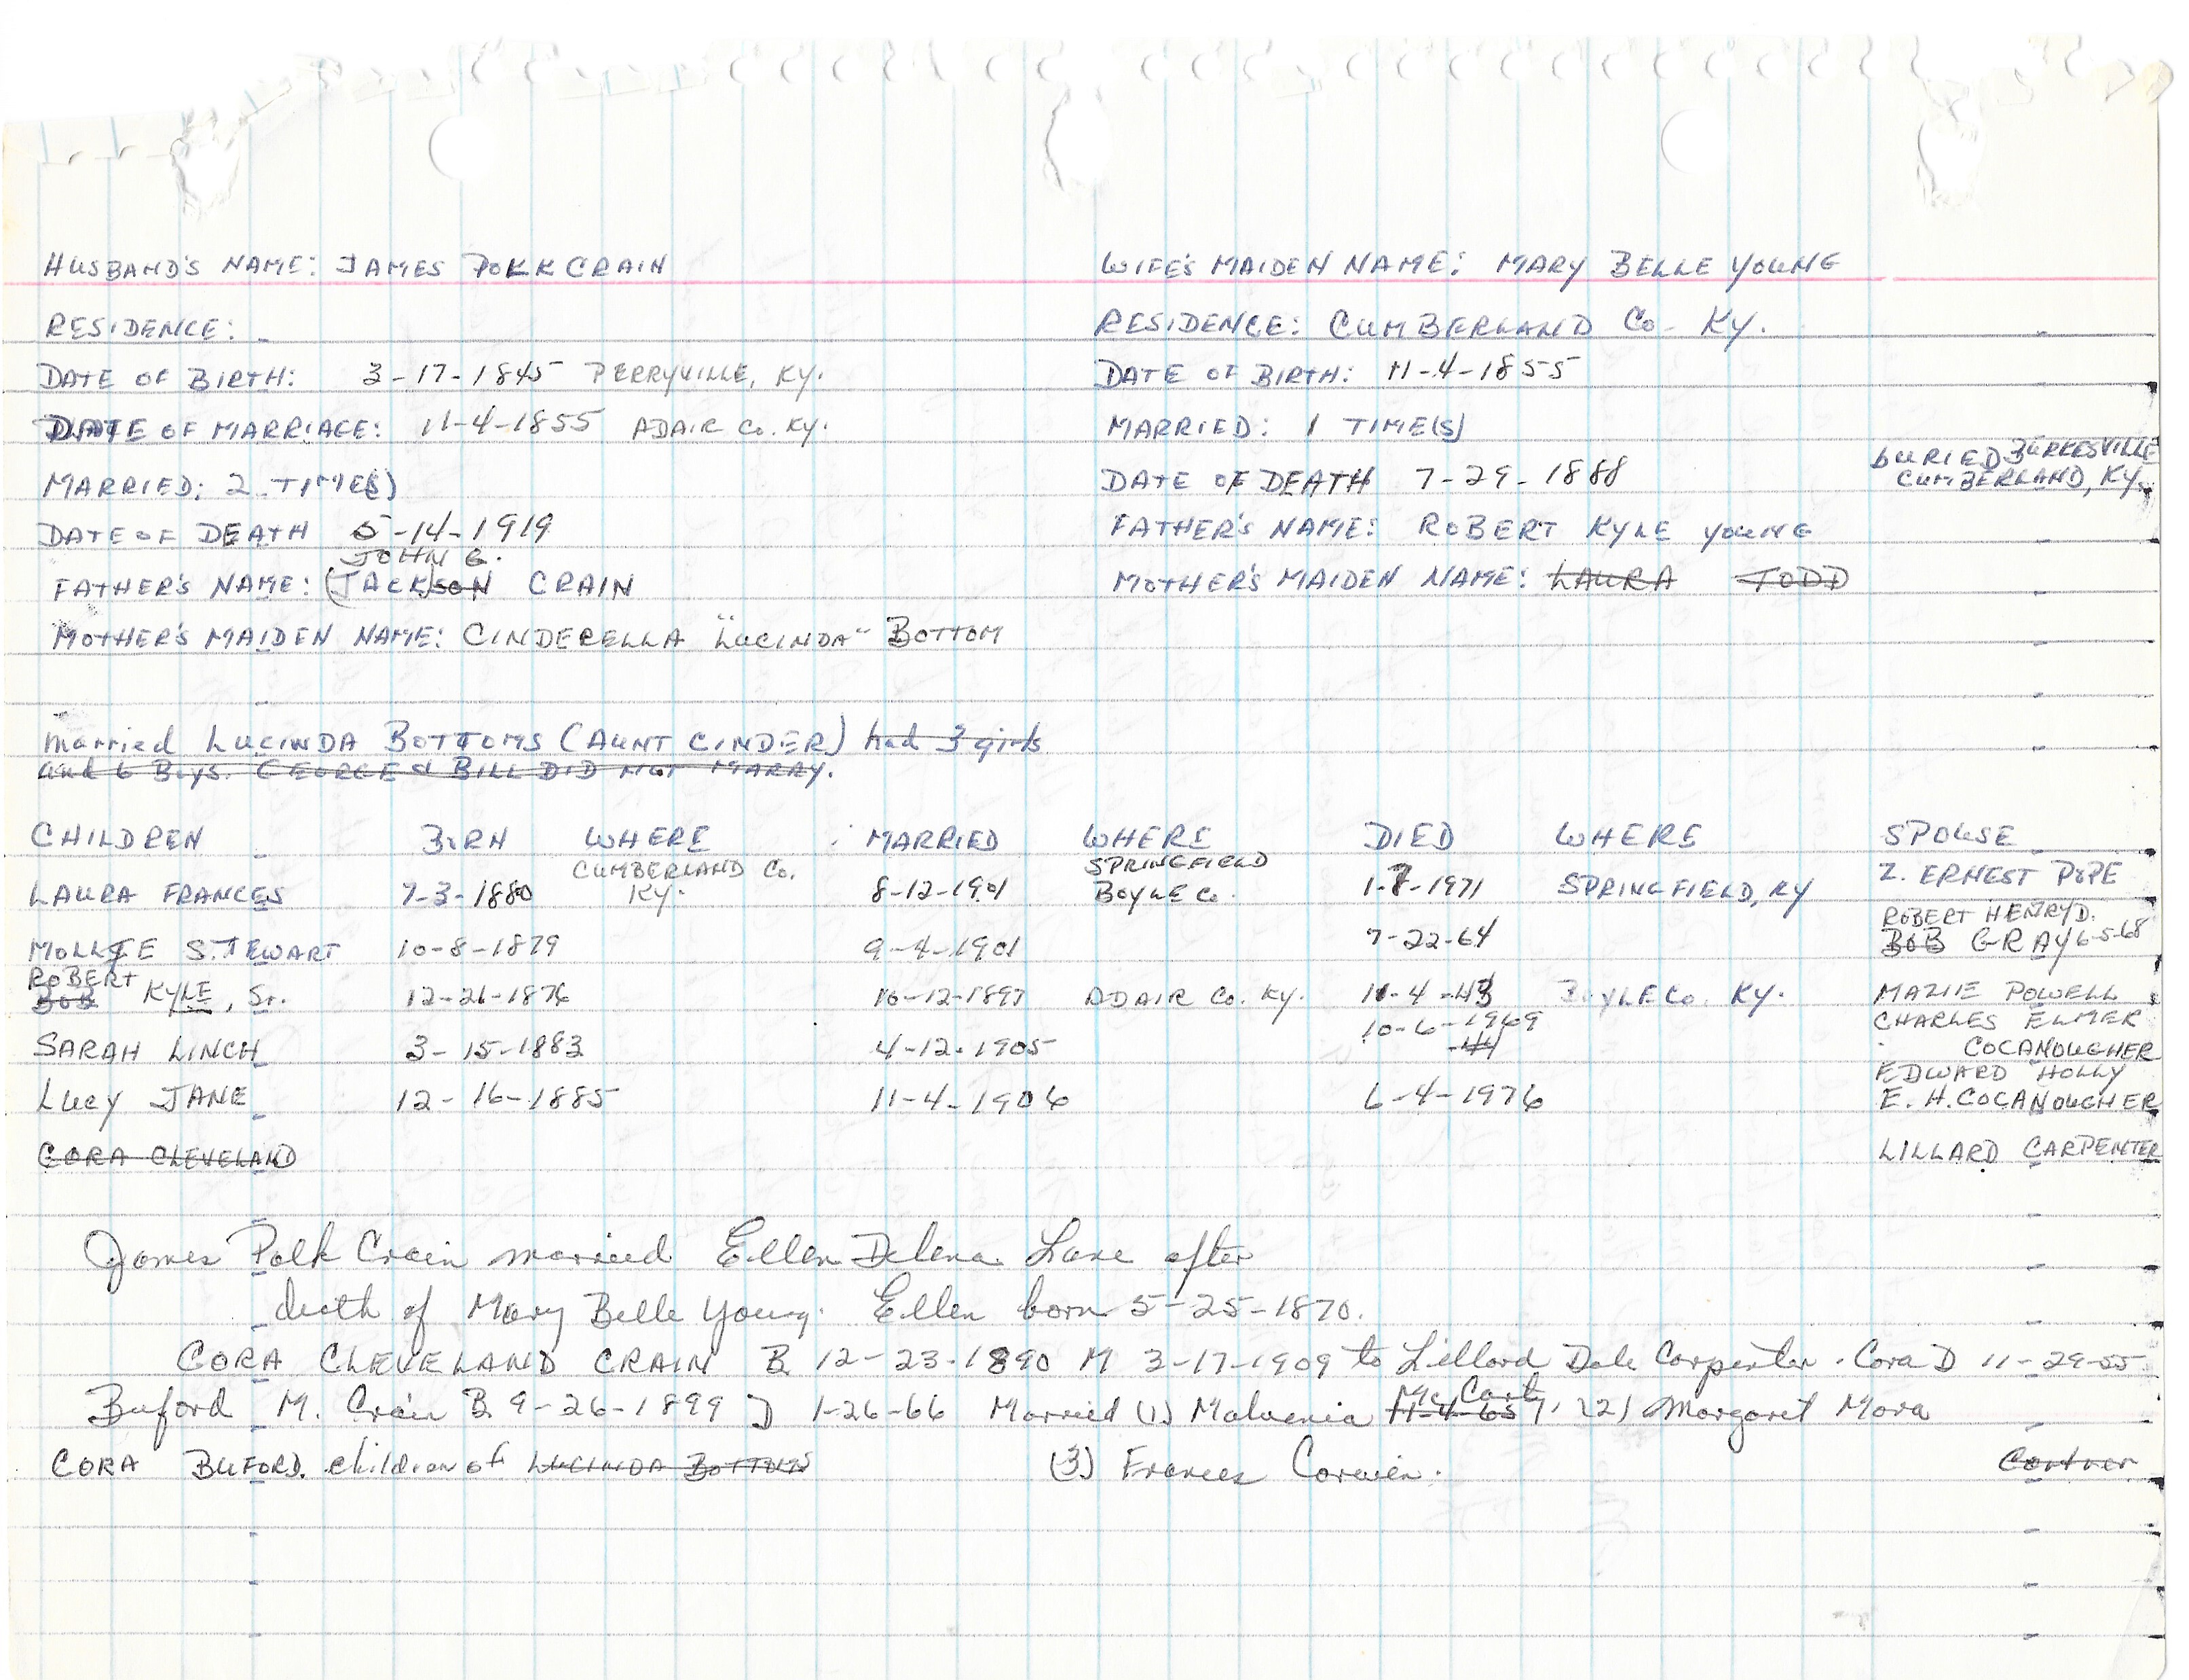 HUSBAND'S NAME: JAMES POLK CRAIN WIFE'S MAIDEN NAME: MARY BELLE YOUNG
RESIDENCE: RESIDENCE: CUMBERLAND Co. KY.
DATE OF BIRTH: 3-17-1845 PERRYVILLE, KY. DATE OF BIRTH: 11-4-1855
DATE OF MARRIAGE: 11-4-1855 ADAIR Co. KY. MARRIED: 1 TIME(S)
MARRIED: 2 TIME(S) DATE OF DEATH 7-29-1888 BURIED BURKESVILLE
CUMBERLAND, KY.
DATE OF DEATH 5-14-1919 FATHER'S NAME: ROBERT KYLE YOUNG
JOHN G.
FATHER'S NAME: (JACK)SON CRAIN MOTHER'S MAIDEN NAME: LAURA TODD
MOTHER'S MAIDEN NAME: CINDERELLA "LUCINDA" BOTTOM
Married LUCINDA BOTTOMS (AUNT CINDER) had 3 girls
and 6 Boys. GEORGE & BILL DID NOT MARRY.
CHILDREN BORN WHERE MARRIED WHERE DIED WHERE SPOUSE
CUMBERLAND Co. SPRINGFIELD
LAURA FRANCES 7-3-1880 KY. 8-12-1901 BOYLE Co. 1-7-1971 SPRINGFIELD, KY Z. ERNEST POPE
ROBERT HENRY D.
MOLLIE STEWART 10-8-1879 9-4-1901 7-22-64 BOB GRAY 6-5-68
ROBERT
BOB KYLE, Sr. 12-26-1876 10-12-1897 ADAIR Co. KY. 11-4-43 BOYLE Co. KY. MAZIE POWELL
10-6-1969 CHARLES ELMER
SARAH LINCH 3-15-1883 4-12-1905 -44 COCANOUGHER
EDWARD HOLLY
LUCY JANE 12-16-1885 11-4-1906 6-4-1976 E. H. COCANOUGHER
CORA CLEVELAND LILLARD CARPENTER
James Polk Crain married Ellen Delena Lane after
death of Mary Belle Young. Ellen born 5-25-1870.
CORA CLEVELAND CRAIN B 12-23-1890 M 3-17-1909 to Lillard Dale Carpenter. Cora D 11-29-55
Mc Cart
Buford M. Crain B 9-26-1899 D 1-26-66 Married (1) Malvenia 11-4-65, (2) Margaret Mora
CORA BUFORD. children of LUCINDA BOTTOMS (3) Frances Corwin. Cortner